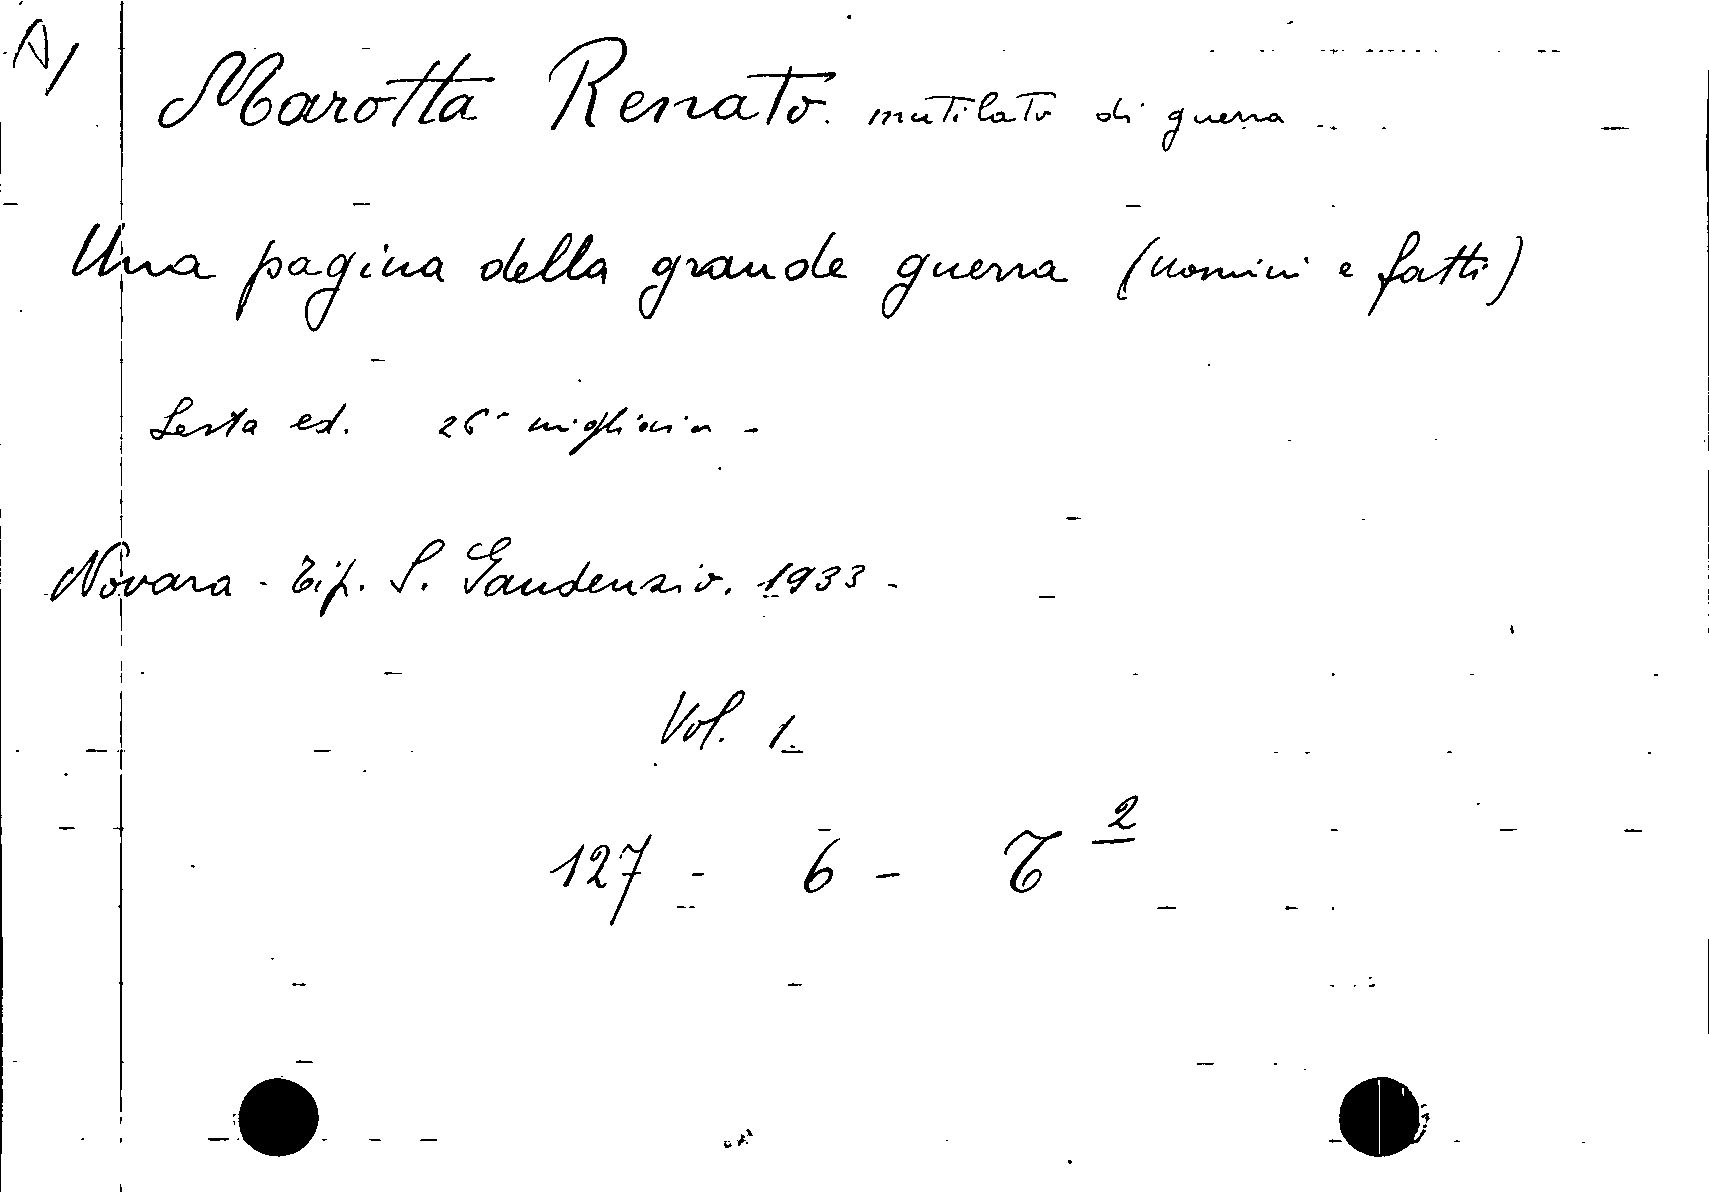 A/
Marotta Renato. mutilato di guerra
Una pagina della grande guerra (uomini e fatti)
Sesta ed. 26° migliaia -
Novara - Tip. S. Gaudenzio. 1933 -
Vol. 1.
127 - 6 - T 2